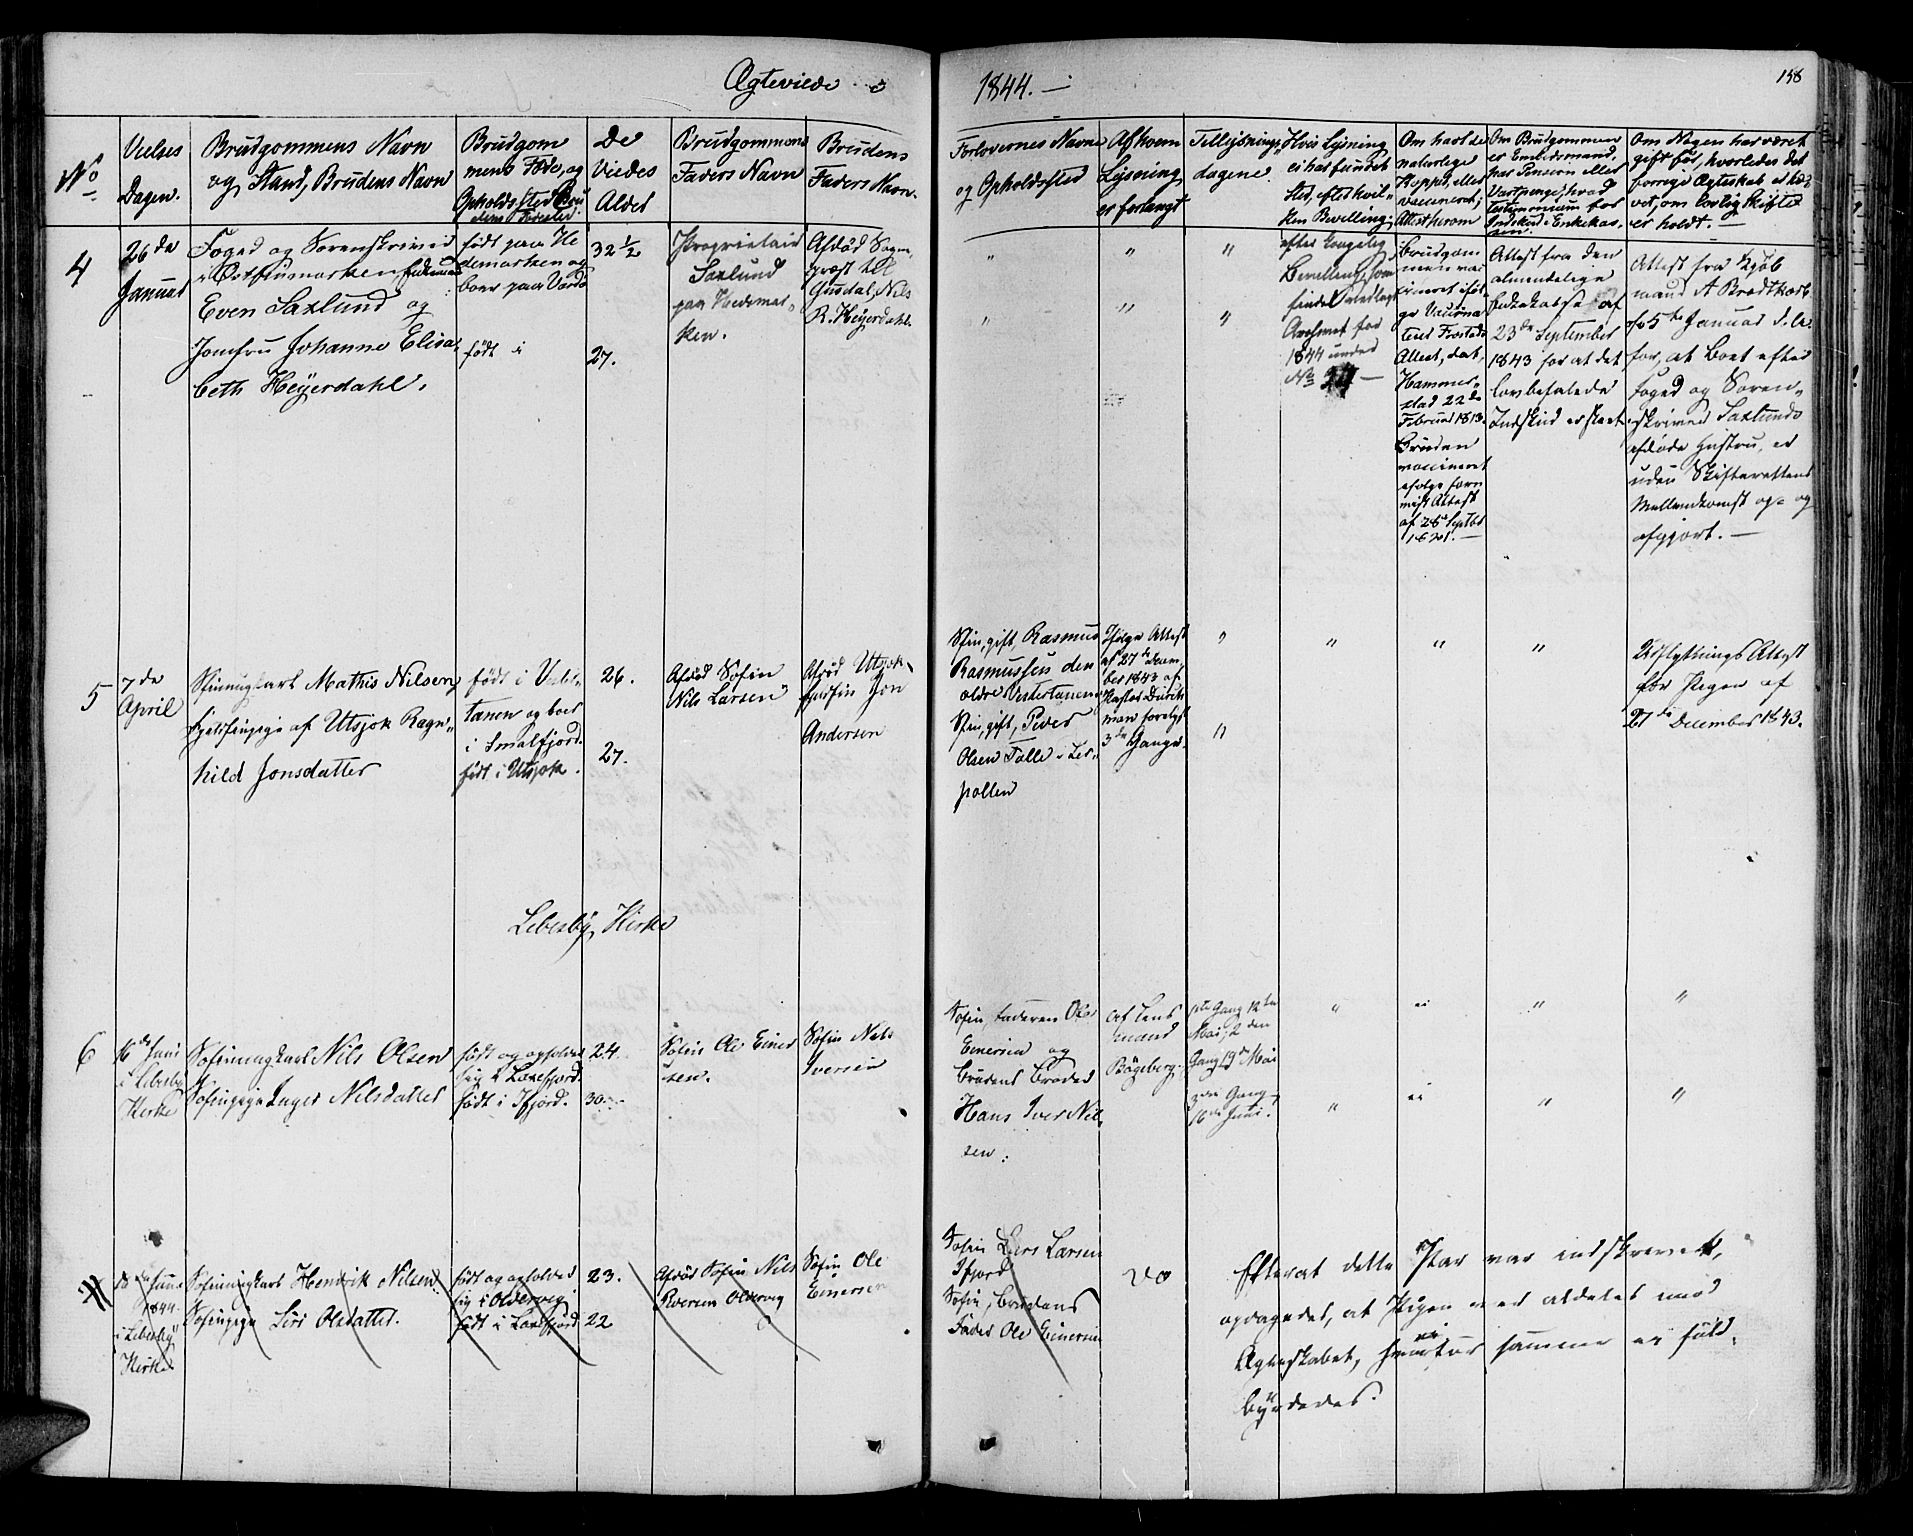 Ægteviede
1844. —
158
No
Vielses
Dagen.
Brudgommens Navn
og Stand, Brudens Navn
Brudgom
mens Føde, og
Opholds-Sted Bru
dens Fødested.
De
Viedes
Alder
Brudgommens
Faders Navn
Brudens
Faders Navn.
Forlovernes Navne
og Opholdssted
Af hvem
Lysning
er forlangt
Tillysnings
dagene.
Hvis Lysning
ei har fundet
Sted, efter hvil
ken Bevilling;
Om havt de
naturlige
Kopper, eller
vaccineret;
Attest herom
Om Brudgommen
er Embedsmand,
har Pension eller
Vartpenge, hvad
Testimonium for
Indskud i Enkekas.
sen.
Om Nogen har været
gift før, hvorledes det
forrige Ægteskab er hæ
vet, om lovlig Skifte
er holdt. —
4
26de
Januar
Foged og Sorenskriver
i Østfinmarken Enkemand
Even Saxlund og
Jomfru Johanne Elisa
beth Heyerdahl.
født paa He
demarken og
boer paa Vadsø
født i
32 ½
27.
Proprietair
Saxlund
paa Hedemar
ken.
Afdød Sogne
præst til
Gusdal, Nils
R. Heyerdahl.
" " "
" " "
efter Kongelig
Bevilling, som
findes vedlagt
Archivet for
1844 under
No
Brudgom
men vac
cineret iføl
ge Vaccina
teur Frostads
Attest, dat,
Hammer
stad 22de
Februar 1813.
Bruden
vaccineret
ifølge
Attest
af 28de Septbr
1821. —
Attest fra den
almindelige
Enkekasse af
23de September
1843 for at det
lovbefalede
Indskud er skeet
Attest fra Kjøb
mand A Brodtkorb
af 5te Januar d. A.
for, at Boet efter
Foged og Soren
skriver Saxlunds
afdøde Hustru, er
uden Skifterettens
Mellemkomst op- og
afgjort. —
5
7de
April
Ungkarl Mathis Nilsen
Pige af Utsjok Ragn
hild Jonsdatter
født i
Tanen og boer
i Smalfjord.
født i Utsjok.
26.
27.
Afdød Søfin
Nils Larsen
Afdød Utsjok
Jon
Andersen
gift, Rasmus
Rasmussen den
ældre Vestertanen
gift, Peder
Olsen Talle i Ler
pollen
Ifølge Attest
af 27de Decem
ber 1843 af
Pastor Durik
man forelyst
3de Gange.
" " " "
"
Udflytnings Attest
for Pigen af
27de December 1843.
Lebesby Kirke
6
16de Juni
i Lebesby
Kirke
Søfinungkarl Nils Olsen
Søfinpige Inger Nilsdatter
født og opholder
sig i Laxefjord.
født i Ifjord.
24.
30.
Søfin Ole Einer
sen.
Søfin Nils
Iversen
Søfin, Faderen Ole
Einersen og
Brudens Broder
Hans Iver Nil
sen.
Af Lens
mand
Bøgeberg
1ste Gang 12te
Mai, 2den
Gang 19de Mai
3die Gang
16de Juni.
" " " "
" " " "
18de Juni
1844.
i Lebesby
Kirke
Søfinungkarl Hendrik Nilsen
Søfinpige Siri Olsdatter.
født og opholder
sig i Oldervig
født i Laxefjord
23.
22
Afdød Søfin Nils
Iversen Oldervig
Søfin Ole
Einersen
Søfin Lars Larsen
Ifjord
Søfin, Brudens
Fader Ole Einersen
do
Efterat dette Par var indskrevet,
opdagedes, at Pigen var aldeles mod
Ægteskabet, hvorfor samme ei fuld
byrdedes.